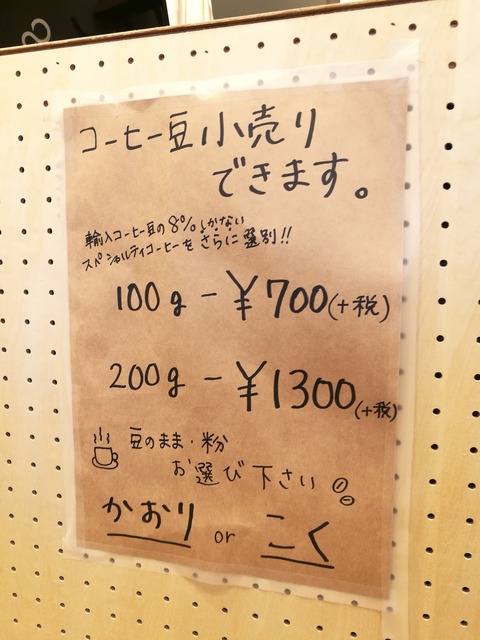 コーヒー豆小売り
できます。
輸入コーヒー豆の8%しかない
スペシャルティコーヒーをさらに選別!!
100g - ¥700(+税)
200g - ¥1300(+税)
豆のまま・粉
お選び下さい
かおり or こく